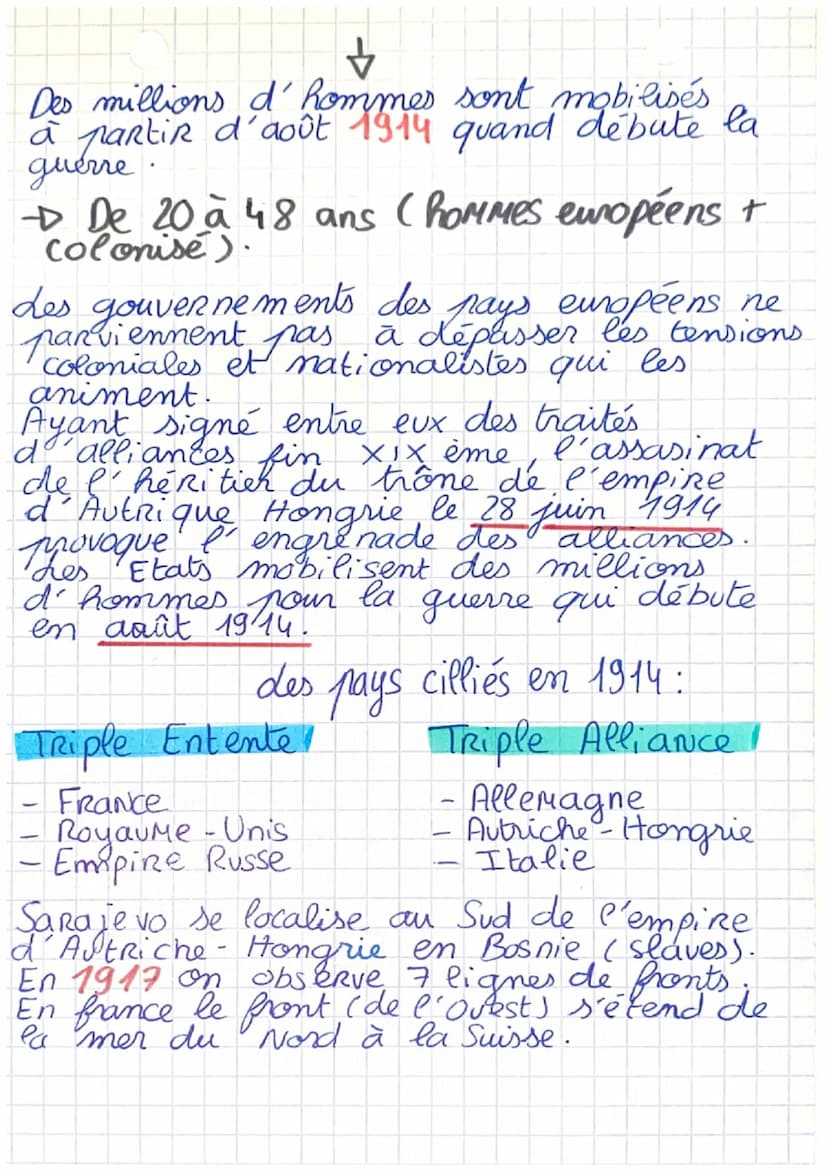 Des millions d'hommes sont mobilisés
à partir d'août 1914 quand débute la
guerre.
→ De 20 à 48 ans (hommes européens +
colonisé).
Les gouvernements des pays européens ne
parviennent pas à dépasser les tensions
coloniales et nationalistes qui les
animent.
Ayant signé entre eux des traités
d'alliances fin XIX ème, l'assasinat
de l'héritier du trône de l'empire
d'Autrique Hongrie le 28 juin 1914
provoque l'engrenade des alliances.
Les Etats mobilisent des millions
d'hommes pour la guerre qui débute
en août 1914.
Les pays cilliés en 1914 :
Triple Entente
- France
- Royaume-Unis
- Empire Russe
Triple Alliance
- Allemagne
- Autriche-Hongrie
- Italie
Sarajevo se localise au Sud de l'empire
d'Autriche-Hongrie en Bosnie (slaves).
En 1917 on observe 7 lignes de fronts.
En france le front (de l'Ouest) s'étend de
la mer du Nord à la Suisse.